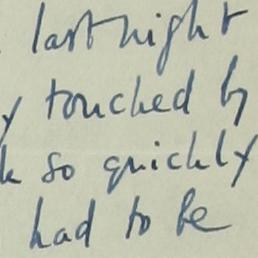 last night
y touched by
k so quickly
had to be